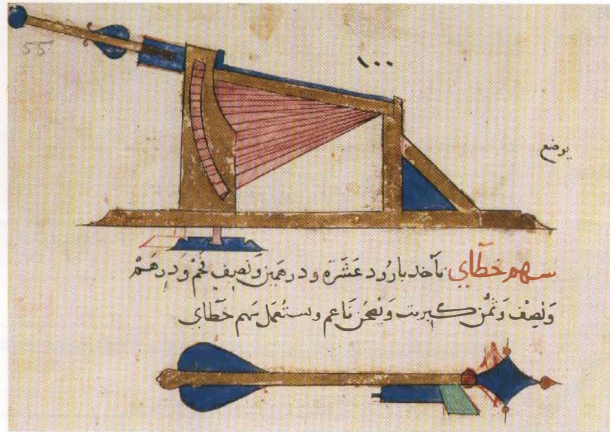 55
١٠٠
يوضع
سهم خطاي تأخد بارود عشرة ودرهمين ونصيف فحم ودرهم
ونصف وثمن كبريت ويصحن ناعم وستعمل سهم خطاي